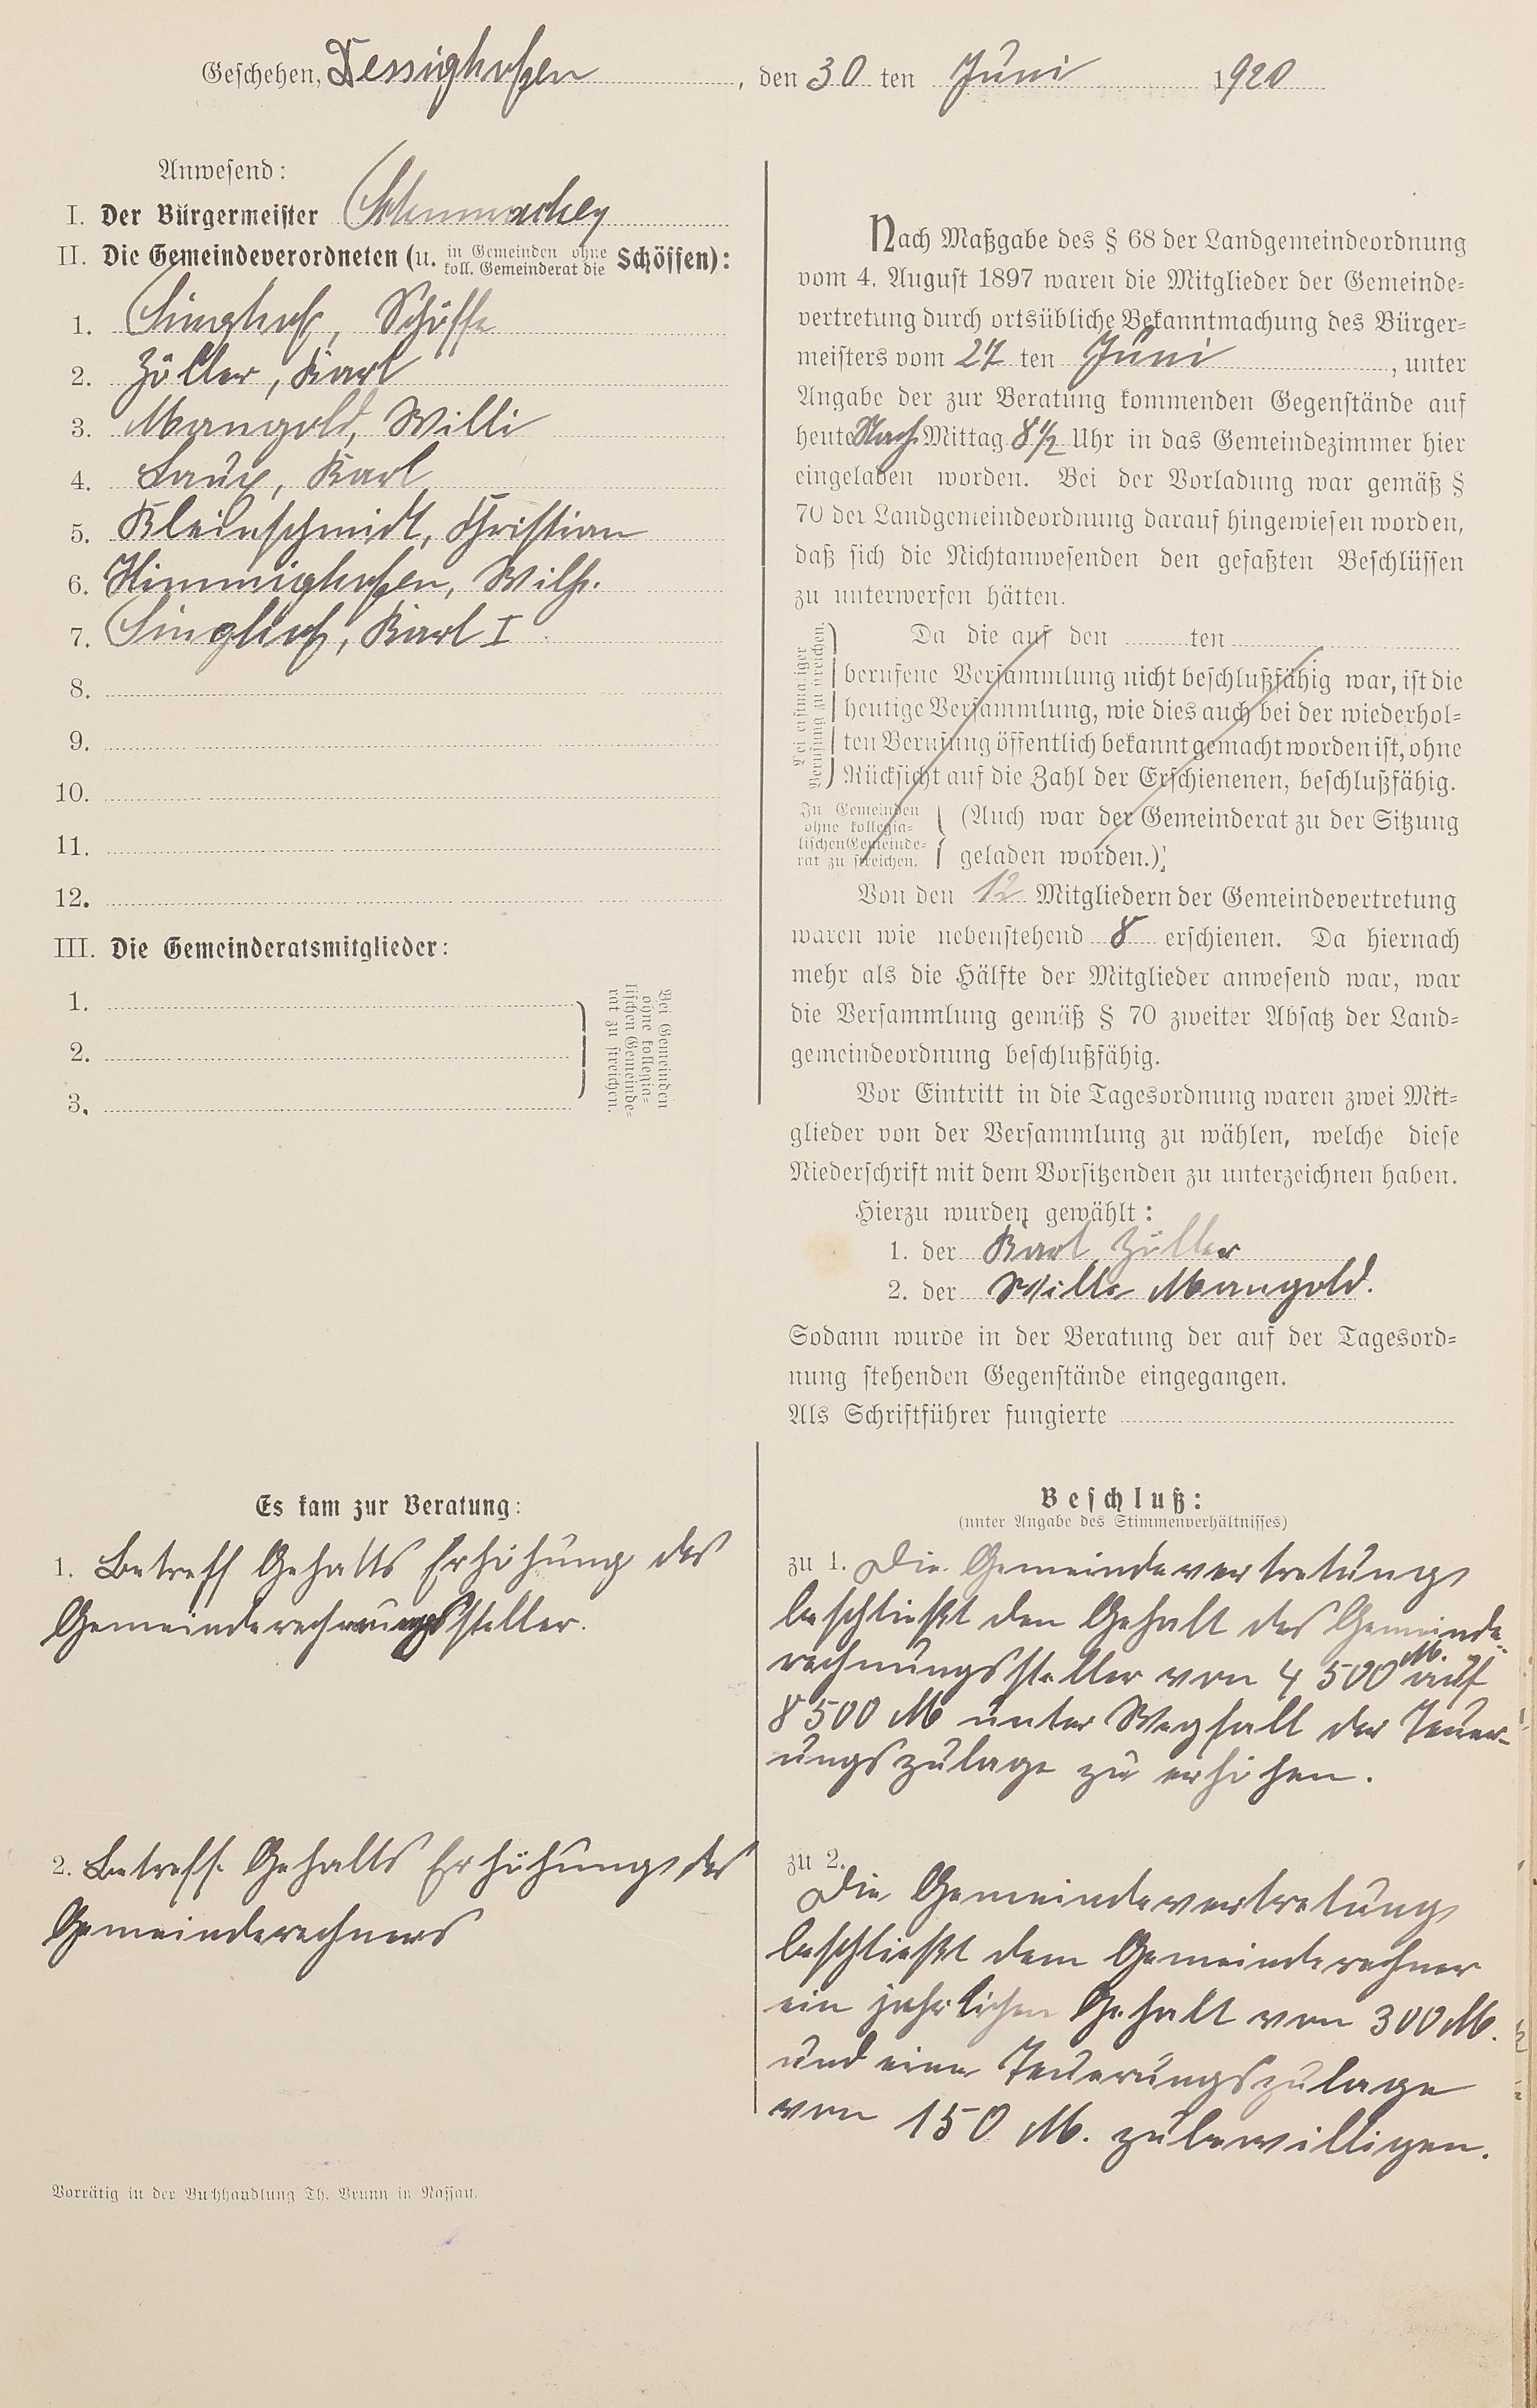 Geschehen, Dessighofen, den 30 ten Juni 1920
Anwesend:
I. Der Bürgermeister
II. Die Gemeindeverordneten (u. in Gemeinden ohne koll. Gemeinderat die Schöffen):
1. Singhof, Schöffe
2. Zöller, Karl
3. Mangold, Willi
4. Laux, Karl
5. Kleinschmidt, Christian
6. Himmighofen, Wilh.
7. Singhof, Karl I
8.
9.
10.
11.
12.
III. Die Gemeinderatsmitglieder:
1.
2.
3.
Bei Gemeinden
ohne kollegia-
lischen Gemeinde-
rat zu streichen.
Nach Maßgabe des § 68 der Landgemeindeordnung
vom 4. August 1897 waren die Mitglieder der Gemeinde-
vertretung durch ortsübliche Bekanntmachung des Bürger-
meisters vom 27 ten Juni, unter
Angabe der zur Beratung kommenden Gegenstände auf
heute Nach Mittag 8 1/2 Uhr in das Gemeindezimmer hier
eingeladen worden. Bei der Vorladung war gemäß §
70 der Landgemeindeordnung darauf hingewiesen worden,
daß sich die Nichtanwesenden den gefaßten Beschlüssen
zu unterwerfen hätten.
Bei erstmaliger
Berufung zu streichen.
Da die auf den ten
berufene Versammlung nicht beschlußfähig war, ist die
heutige Versammlung, wie dies auch bei der wiederhol-
ten Berufung öffentlich bekannt gemacht worden ist, ohne
Rücksicht auf die Zahl der Erschienenen, beschlußfähig.
In Gemeinden
ohne kollegia-
lischen Gemeinde-
rat zu streichen.
(Auch war der Gemeinderat zu der Sitzung
geladen worden.)
Von den 12 Mitgliedern der Gemeindevertretung
waren wie nebenstehend 8 erschienen. Da hiernach
mehr als die Hälfte der Mitglieder anwesend war, war
die Versammlung gemäß § 70 zweiter Absatz der Land-
gemeindeordnung beschlußfähig.
Vor Eintritt in die Tagesordnung waren zwei Mit-
glieder von der Versammlung zu wählen, welche diese
Niederschrift mit dem Vorsitzenden zu unterzeichnen haben.
Hierzu wurden gewählt:
1. der Karl Zöller
2. der Willi Mangold.
Sodann wurde in der Beratung der auf der Tagesord-
nung stehenden Gegenstände eingegangen.
Als Schriftführer fungierte
Es kam zur Beratung:
1. Betreff Gehalts Erhöhung des
Gemeinderechnungssteller.
2. Betreff. Gehalts Erhöhung des
Gemeinderechners
Beschluß:
(unter Angabe des Stimmenverhältnisses)
zu 1. Die Gemeindevertretung
beschließt den Gehalt des Gemeinde-
rechnungssteller von 4 500 M. auf
8 500 M unter Wegfall der Teuer-
ungszulage zu erhöhen.
zu 2.
Die Gemeindevertretung
beschließt dem Gemeinderechner
ein jährlichen Gehalt von 300 M.
und eine Teuerungszulage
von 150 M. zubewilligen.
Vorrätig in der Buchhandlung Th. Brunn in Nassau.